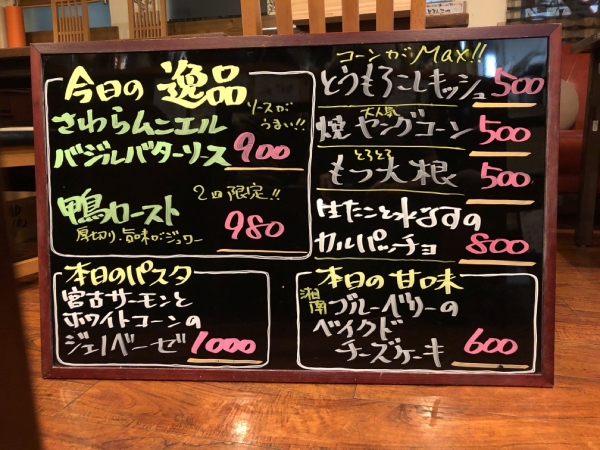 今日の 逸品
さわらムニエル
ソースが
うまい!!
バジルバターソース 900
鴨ロースト
2皿限定!!
厚切り、旨味がジュワー
980
コーンがMax!!
とうもろこしキッシュ 500
大人気
焼ヤングコーン 500
とろとろ
もつ大根 500
はたこと水なすの
カルパッチョ 800
本日のパスタ
宮古サーモンと
ホワイトコーンの
ジェノベーゼ 1000
本日の甘味
湘南 ブルーベリーの
ベイクド
チーズケーキ 600